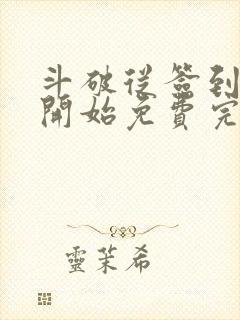 斗破從簽到
開始免費完
靈茉希